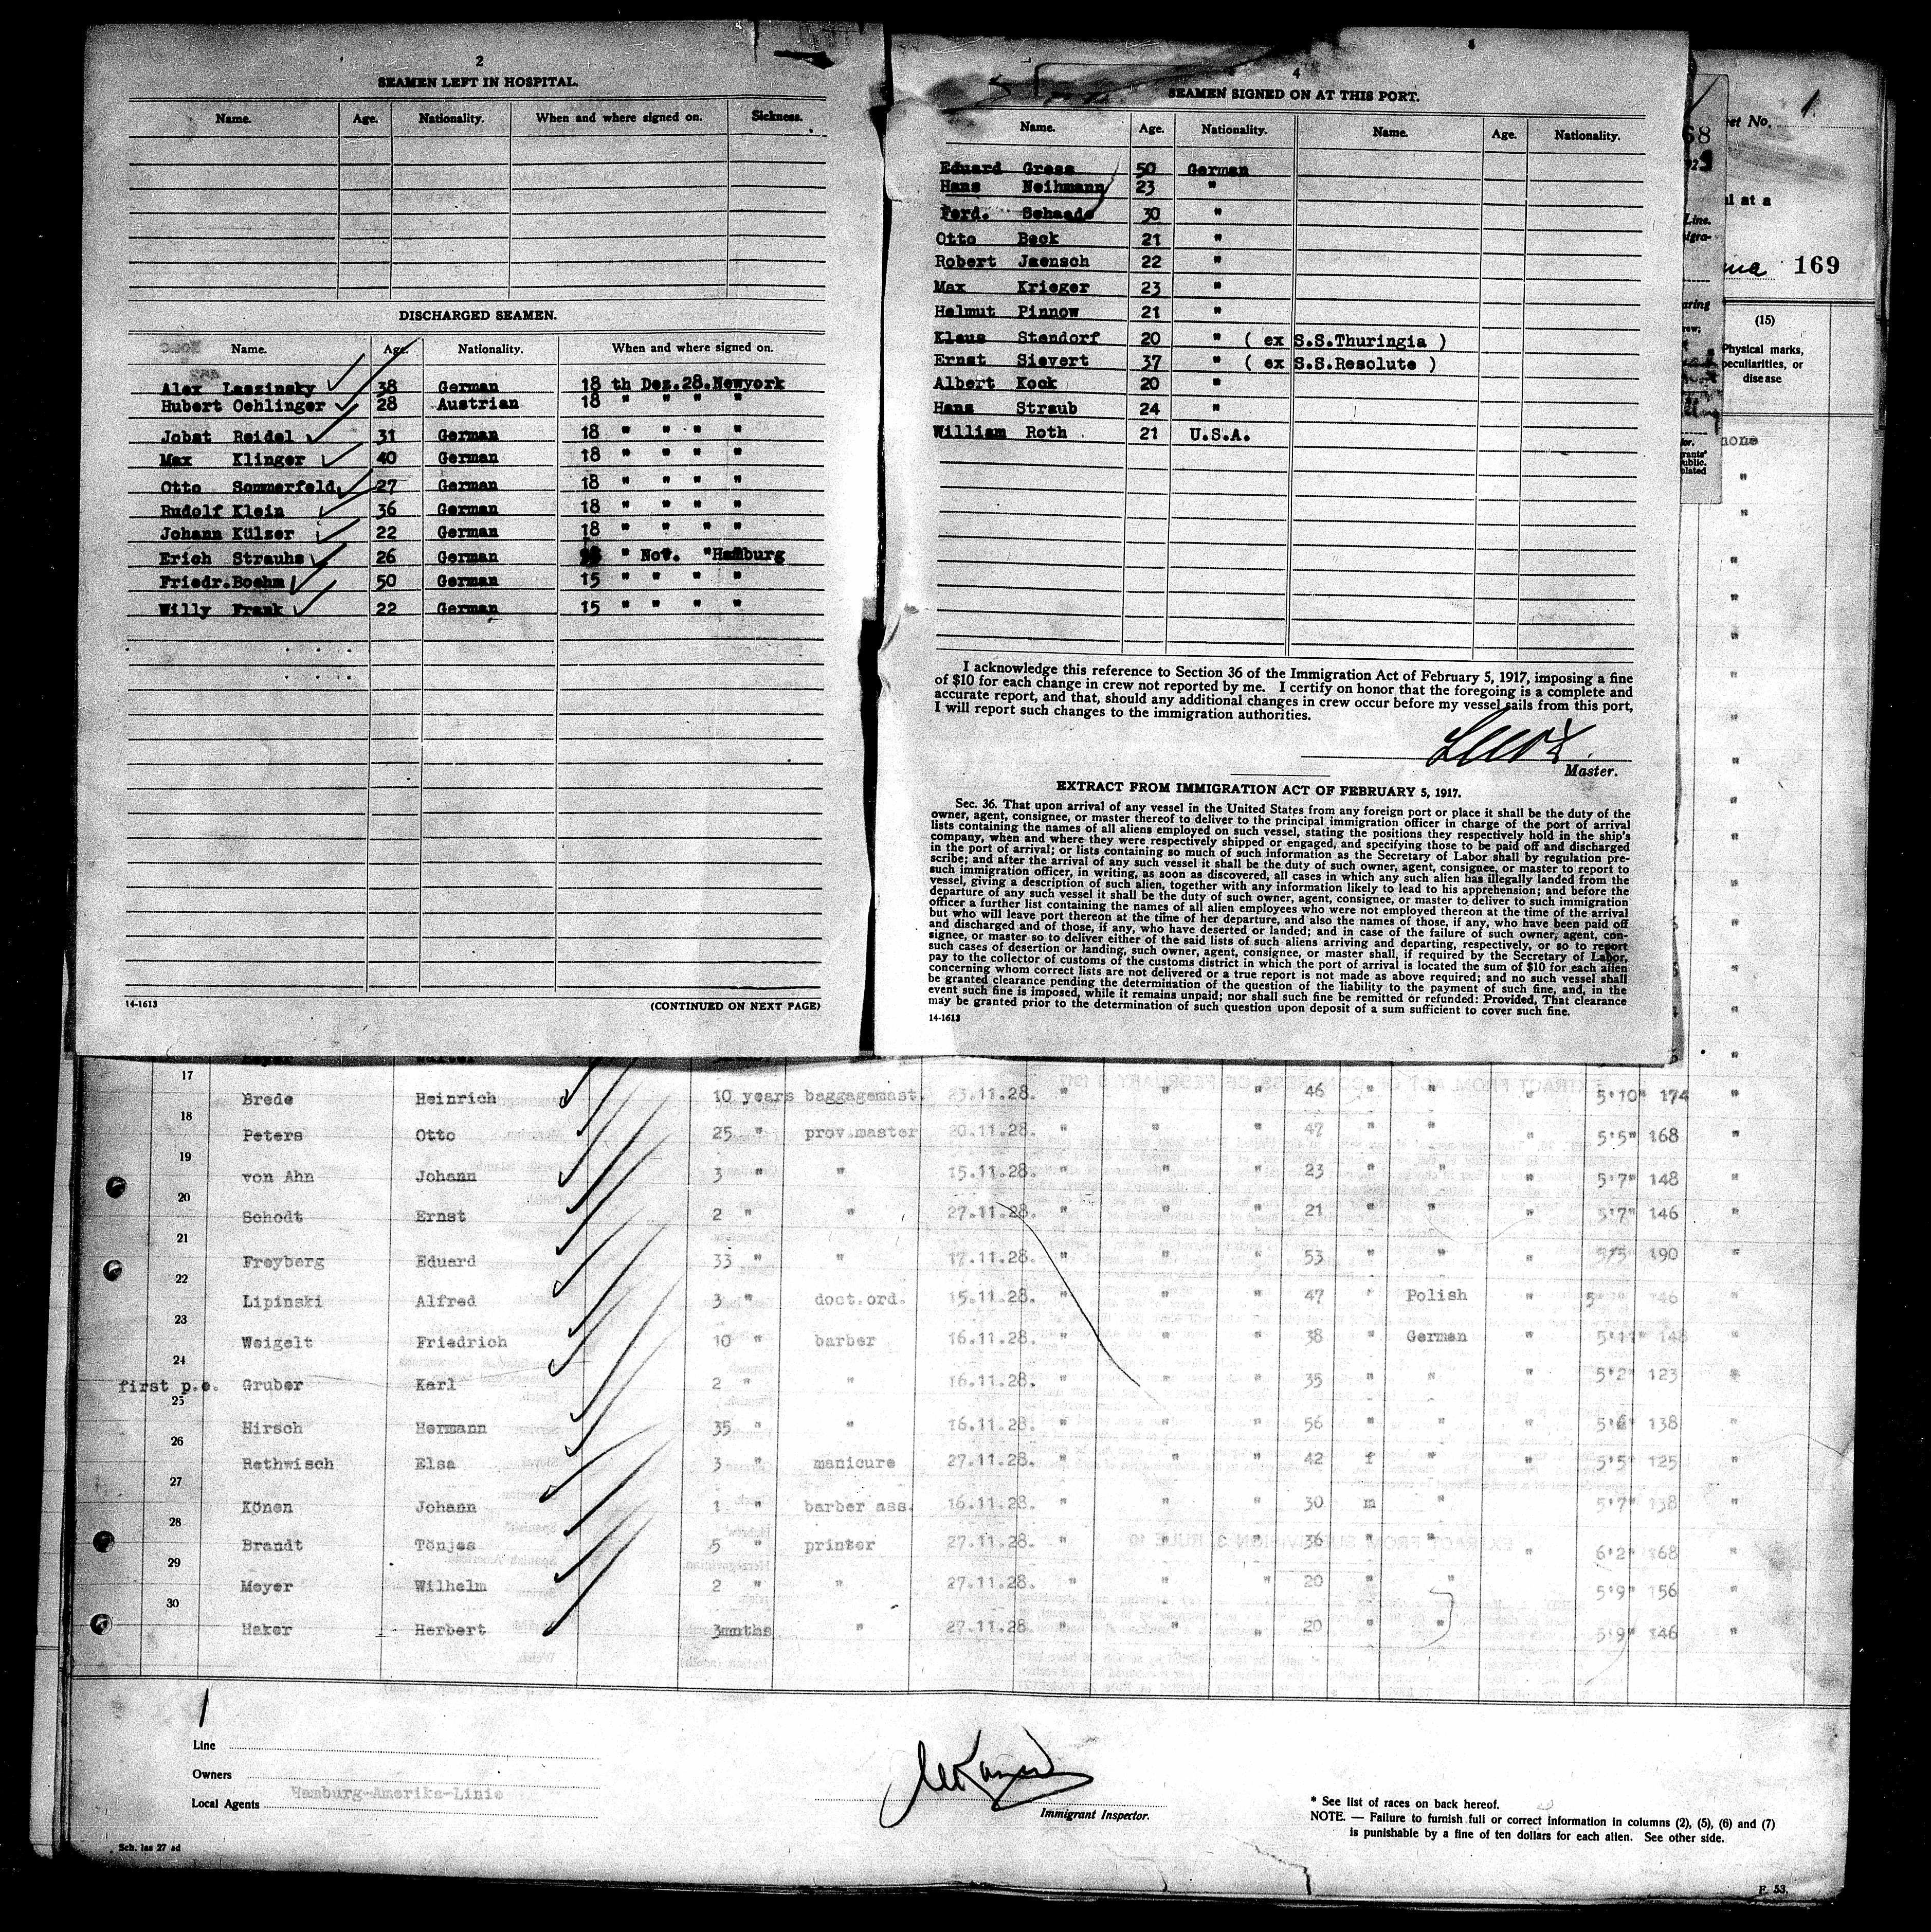 2
SEAMEN LEFT IN HOSPITAL.
Name. Age. Nationality. When and where signed on. Sickness.
DISCHARGED SEAMEN.
Name. Age. Nationality. When and where signed on.
Alex Laszinsky 38 German 18 th Dez.28.Newyork
Hubert Oehlinger 28 Austrian 18 " " " "
Jobst Reidel 31 German 18 " " " "
Max Klinger 40 German 18 " " " "
Otto Sommerfeld 27 German 18 " " " "
Rudolf Klein 36 German 18 " " " "
Johann Külzer 22 German 18 " " " "
Erich Strauhs 26 German " Nov. "Hamburg
Friedr.Boehm 50 German 15 " " " "
Willy Frank 22 German 15 " " " "
14-1613
(CONTINUED ON NEXT PAGE)
4
SEAMEN SIGNED ON AT THIS PORT.
Name. Age. Nationality. Name. Age. Nationality.
Eduard Gress 50 German
Hans Neihmann 23 "
Ferd. Schaade 30 "
Otto Beck 21 "
Robert Jaensch 22 "
Max Krieger 23 "
Helmut Pinnow 21 "
Klaus Stendorf 20 " ( ex S.S.Thuringia )
Ernst Sievert 37 " ( ex S.S.Resolute )
Albert Kock 20 "
Hans Straub 24 "
William Roth 21 U.S.A.
I acknowledge this reference to Section 36 of the Immigration Act of February 5, 1917, imposing a fine
of $10 for each change in crew not reported by me. I certify on honor that the foregoing is a complete and
accurate report, and that, should any additional changes in crew occur before my vessel sails from this port,
I will report such changes to the immigration authorities.
Master.
EXTRACT FROM IMMIGRATION ACT OF FEBRUARY 5, 1917.
Sec. 36. That upon arrival of any vessel in the United States from any foreign port or place it shall be the duty of the
owner, agent, consignee, or master thereof to deliver to the principal immigration officer in charge of the port of arrival
lists containing the names of all aliens employed on such vessel, stating the positions they respectively hold in the ship's
company, when and where they were respectively shipped or engaged, and specifying those to be paid off and discharged
in the port of arrival; or lists containing so much of such information as the Secretary of Labor shall by regulation pre-
scribe; and after the arrival of any such vessel it shall be the duty of such owner, agent, consignee, or master to report to
such immigration officer, in writing, as soon as discovered, all cases in which any such alien has illegally landed from the
vessel, giving a description of such alien, together with any information likely to lead to his apprehension; and before the
departure of any such vessel it shall be the duty of such owner, agent, consignee, or master to deliver to such immigration
officer a further list containing the names of all alien employees who were not employed thereon at the time of the arrival
but who will leave port thereon at the time of her departure, and also the names of those, if any, who have been paid off
and discharged and of those, if any, who have deserted or landed; and in case of the failure of such owner, agent, con-
signee, or master so to deliver either of the said lists of such aliens arriving and departing, respectively, or so to report
such cases of desertion or landing, such owner, agent, consignee, or master shall, if required by the Secretary of Labor,
pay to the collector of customs of the customs district in which the port of arrival is located the sum of $10 for each alien
concerning whom correct lists are not delivered or a true report is not made as above required; and no such vessel shall
be granted clearance pending the determination of the question of the liability to the payment of such fine, and, in the
event such fine is imposed, while it remains unpaid; nor shall such fine be remitted or refunded: Provided, That clearance
may be granted prior to the determination of such question upon deposit of a sum sufficient to cover such fine.
14-1613
No. 1
68
al at a
Line.
169
(15)
Physical marks,
peculiarities, or
disease
none
17 Brede Heinrich 10 years baggagemast. 23.11.28. " " " 46 " " " 5'10" 174 "
18 Peters Otto 25 " prov.master 20.11.28. " " " 47 " " " 5'5" 168 "
19 von Ahn Johann 3 " " 15.11.28. " " " 23 " " " 5'7" 148 "
20 Schodt Ernst 2 " " 27.11.28. " " " 21 " " " 5'7" 146 "
21 Freyberg Eduard 33 " " 17.11.28. " " " 53 " " " 5'5 190 "
22 Lipinski Alfred 3 " doct.ord. 15.11.28. " " " 47 " Polish " 5 146 "
23 Weigelt Friedrich 10 " barber 16.11.28. " " " 38 " German " 5'11" 148 "
24 first p.e. Gruber Karl 2 " " 16.11.28. " " " 35 " " " 5'2" 123 "
25 Hirsch Hermann 35 " " 16.11.28. " " " 56 " " " 5'6" 138 "
26 Rethwisch Elsa 3 " manicure 27.11.28. " " " 42 f " " 5'5" 125 "
27 Könen Johann 1 " barber ass. 16.11.28. " " " 30 m " 5'7" 138 "
28 Brandt Tönjes 5 " printer 27.11.28. " " " 36 " " " 6'2" 168 "
29 Meyer Wilhelm 2 " " 27.11.28. " " " 20 " " 5'9" 156 "
30 Haker Herbert 3mnths " 27.11.28. " " " 20 " " 5'9" 146 "
1
Line
Owners
Hamburg-Amerika-Linie
Local Agents
Immigrant Inspector.
* See list of races on back hereof.
NOTE. — Failure to furnish full or correct information in columns (2), (5), (6) and (7)
is punishable by a fine of ten dollars for each alien. See other side.
Sch. las 27 ad
F. 53.